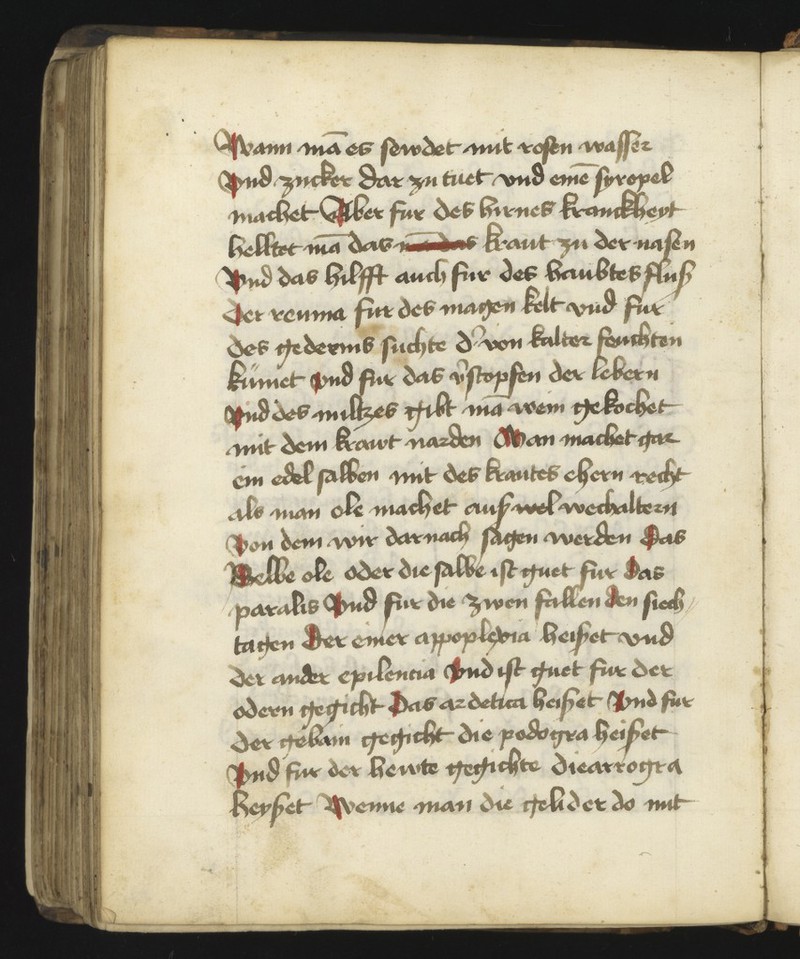 Wann mā es sewdet mit rosen wasser
Vnd zucker dar zu tuet vnd einē syropel
machet Aber fur des hirnes kranckheyt
helltet mā das kraut zu der nasen
Vnd das hilfft auch fur des haubtes fluß
Der reuma fur des magen kelt vnd fur
des gederms suchte d' von kalter feuchten
kümet Vnd fur das v̄stopfen der lebern
Vnd des miltzes gibt mā wein gekochet
mit dem krawt narden Man machet gar
ein edel salben mit des krautes ehern recht
als man ole machet auß wechaltern
Von dem wir darnach sagen werden Das
Selbe ole oder die salbe ist guet fur Das
paralis Vnd fur die zwen fallen den siech
tagen Der einer appoplexia heiset vnd
der ander epilencia Vnd ist guet fur der
odern gegicht Das ardetica heiset Vnd fur
der gebain gegicht die podogra heiset
Vnd fur der hewte gegichte die arrogra
heyset Wenne man die gelider do mit